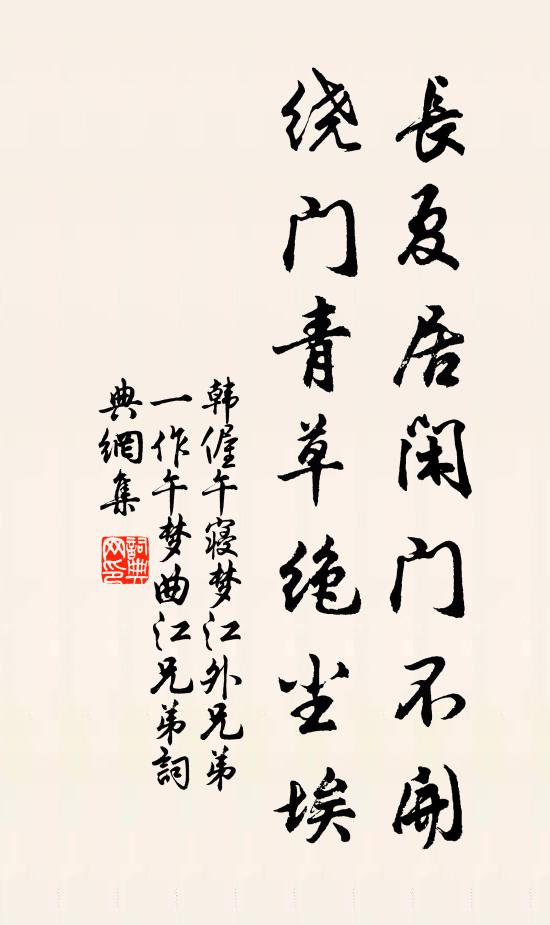 長夏居閑門不開
绕门青草绝尘埃
韩偓午寝梦江外兄弟
一作午梦曲江兄弟詞
典網集
詞典
网印